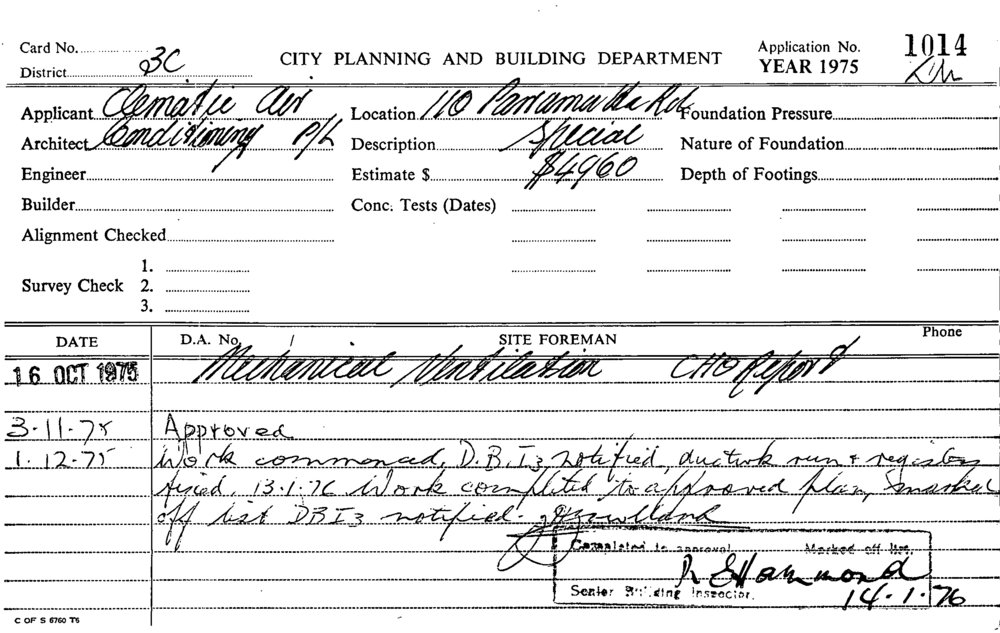 Card No.
District 3C
CITY PLANNING AND BUILDING DEPARTMENT
Application No. 1014
YEAR 1975
Applicant Clematic Air
Location 110 Parramatta Rd
Foundation Pressure
Architect Conditioning P/L
Description Special
Nature of Foundation
Engineer
Estimate $ $4960
Depth of Footings
Builder
Conc. Tests (Dates)
Alignment Checked
1.
Survey Check 2.
3.
DATE
D.A. No.
SITE FOREMAN
Phone
16 OCT 1975 Mechanical Ventilation CHO Report
3-11-75 Approved
1.12.75 Work commenced, D.B.I3 notified, ductwk run + registers
fixed. 13.1.76 Work completed to approved plan, marked
off list DBI3 notified.
Completed to approval Marked off list.
R E Hammond
Senior Building Inspector. 14.1.76
C OF S 6760 T6